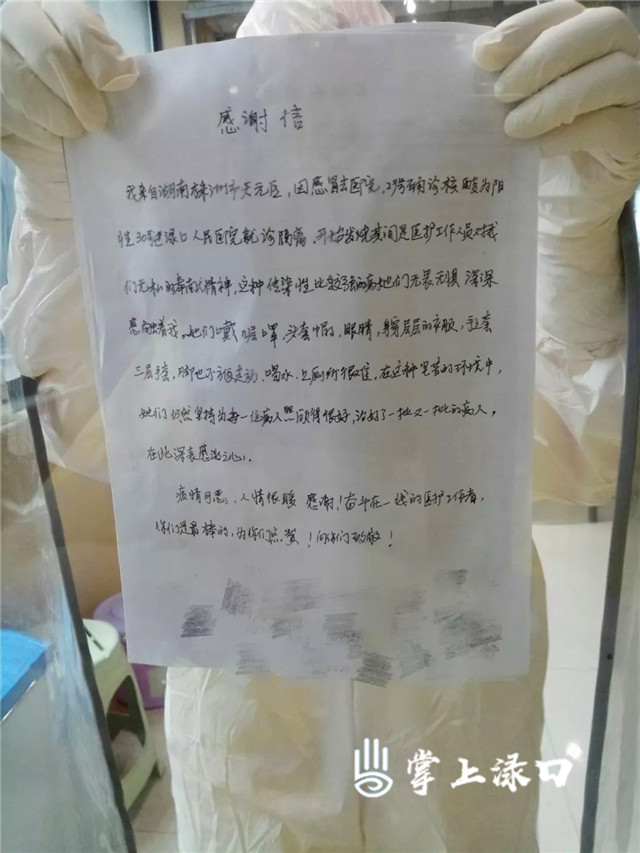 感谢信
我来自湖南株洲市天元区,因感冒去医院,29号确诊核酸为阳
性30号进渌口人民医院就诊隔离,开始发烧期间是医护工作人员对我
们无私的奉献精神,这种传染性比较强的病她们无畏无惧 深深
感触着我,她们戴 罩 头套 眼睛,身穿层层的衣服,手套
三层手套,脚也不方便走动,喝水、上厕所很难,在这种的环境中,
她们仍然坚持为每一位病人照顾得很好,治好了一批又一批的病人,
在此深表感激之心.
疫情可恶、人情很暖 感谢!奋斗在一线的医护工作者,
你们是最棒的,为你们点赞!向你们致敬!
掌上渌口